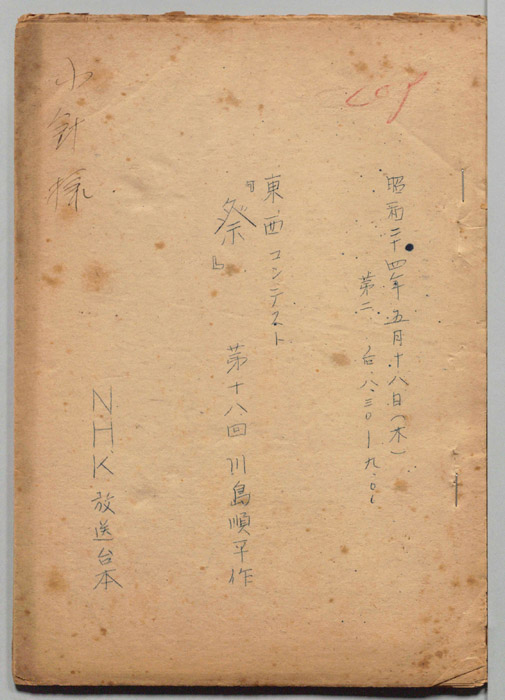 昭和二十四年五月十八日(木)
第二 后.八.三〇ー九.〇〇
東西コンテスト
『祭』 第十八回 川島順平作
NHK放送台本
小針様